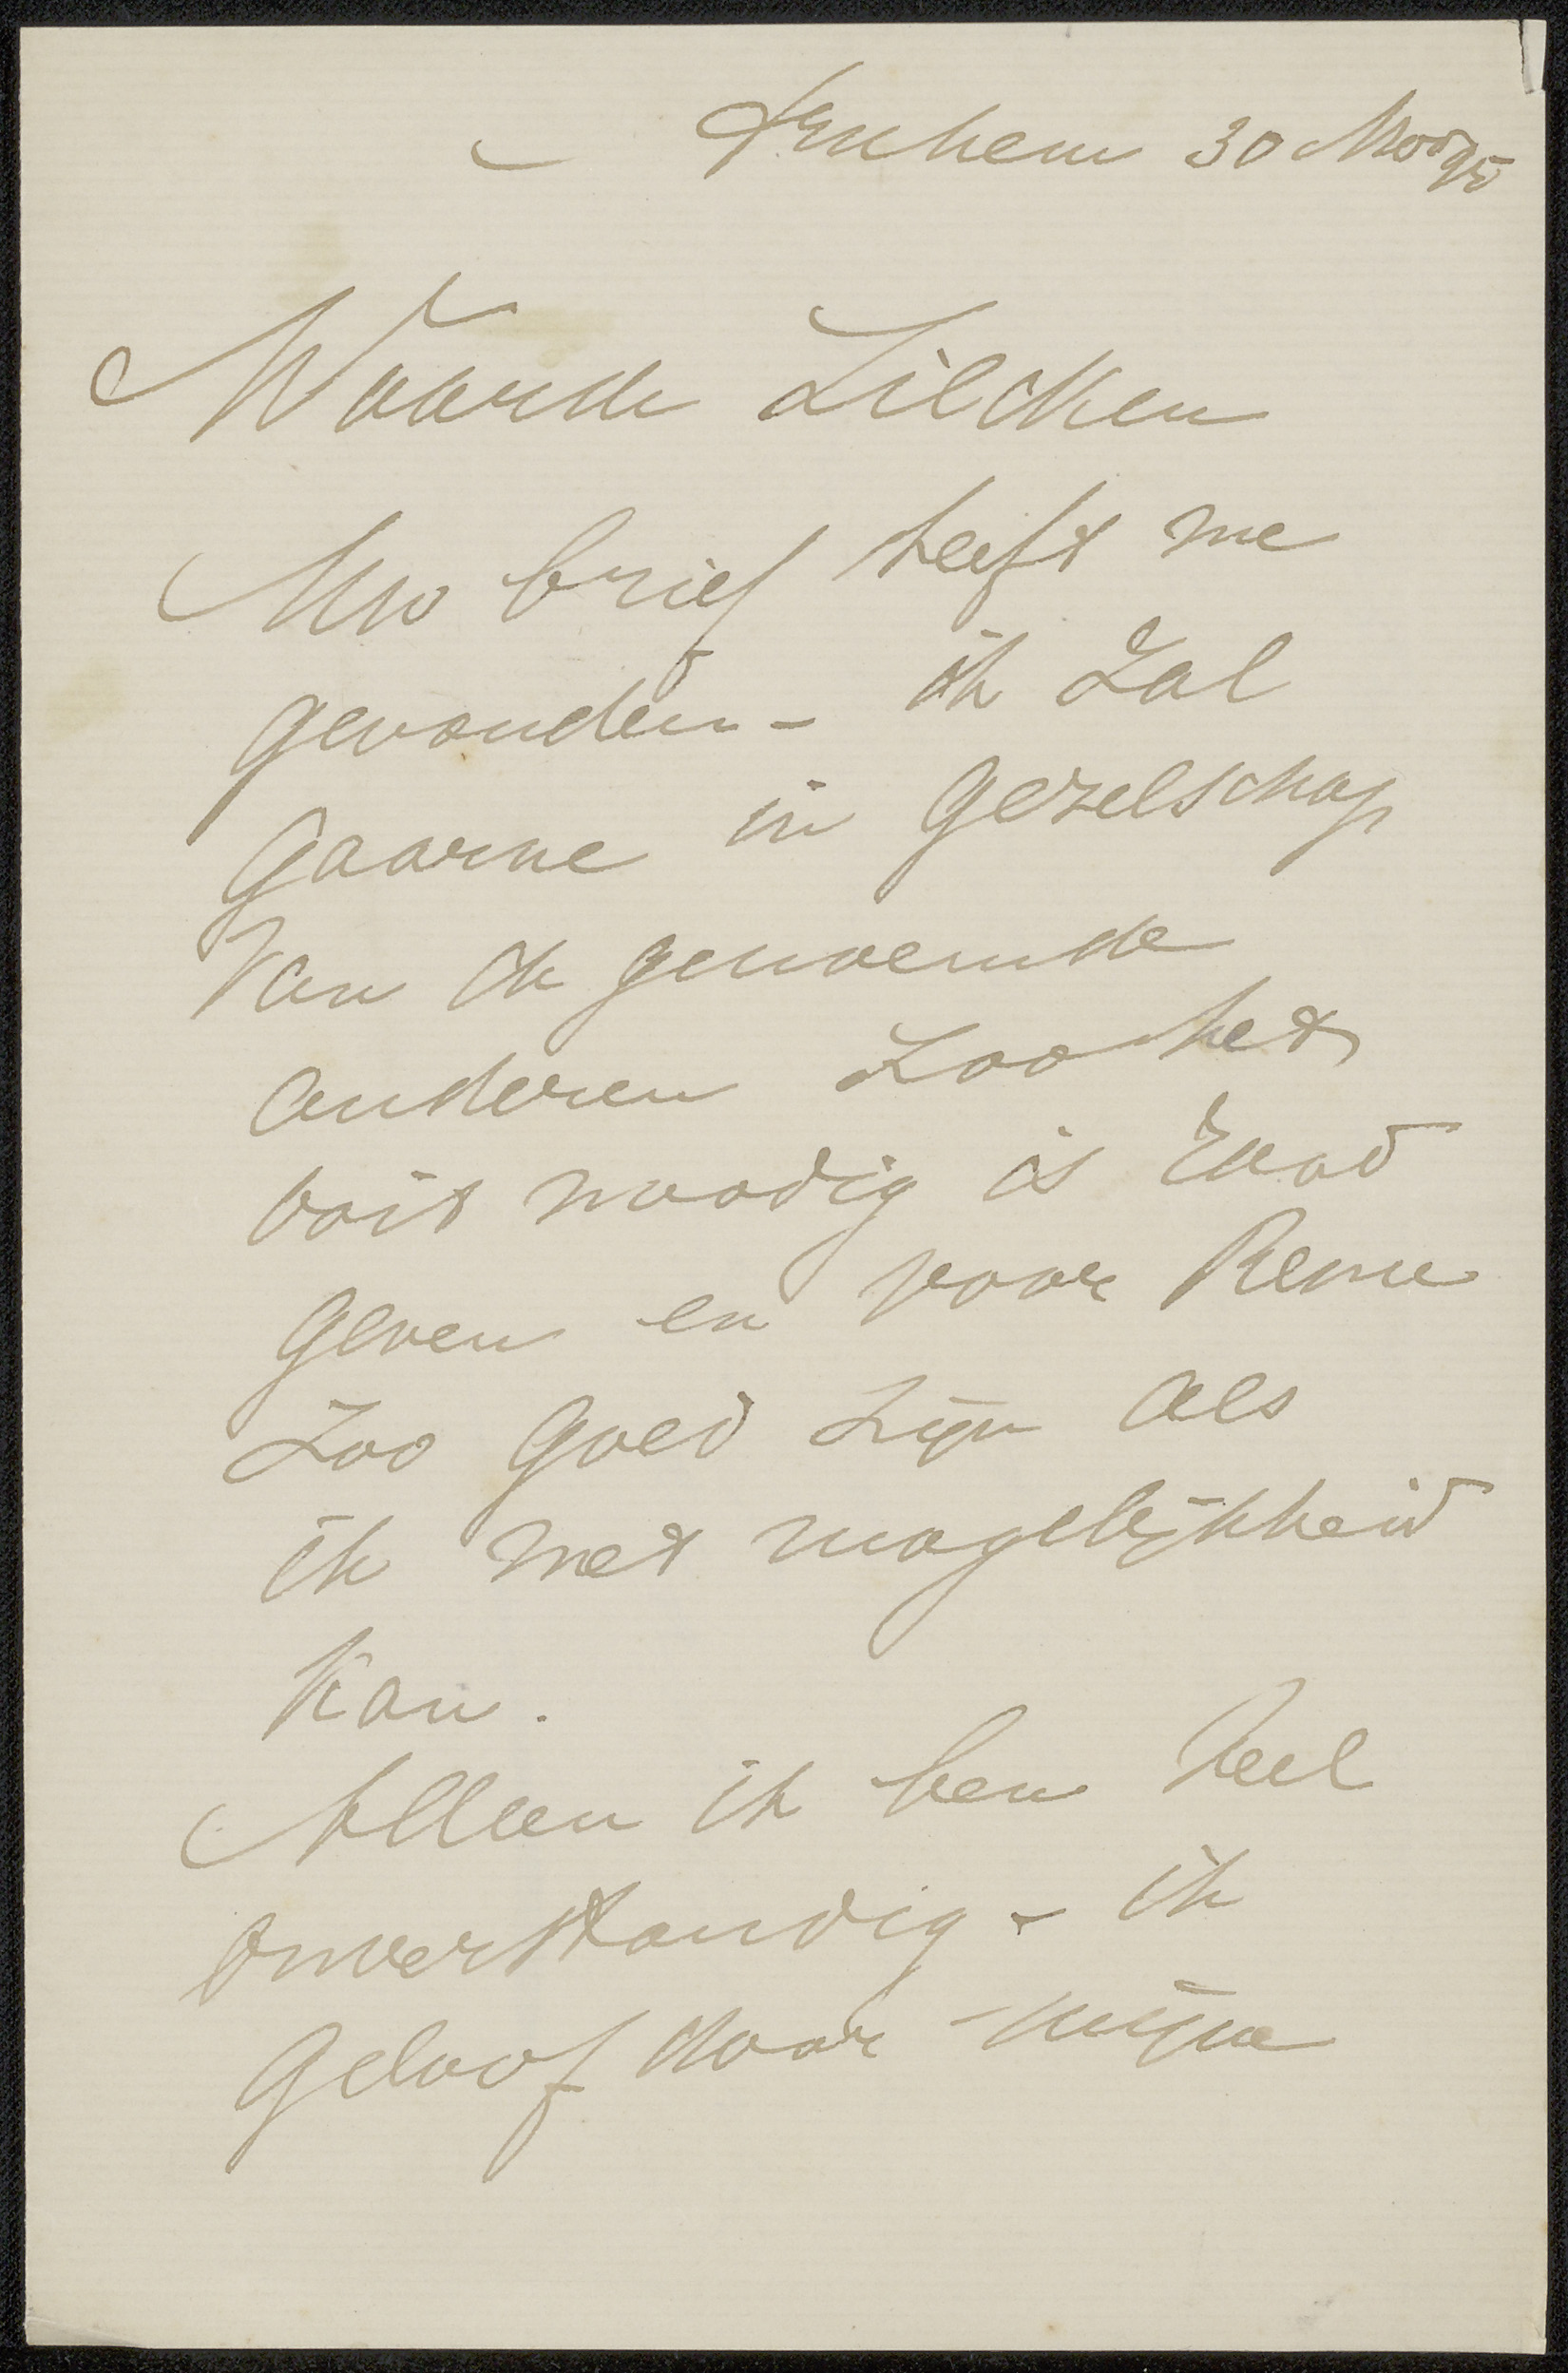 Arnhem 30 Mrt 95
Waarde Zilcken
Uw brief heeft me
gevonden - ik zal
gaarne in gezelschap
van de genoemde
anderen zoo het
ooit noodig is raad
geven en voor Renée
zoo goed zijn als
ik met mogelijkheid
kan.
Alleen ik ben heel
onverstandig - ik
geloof door mijne